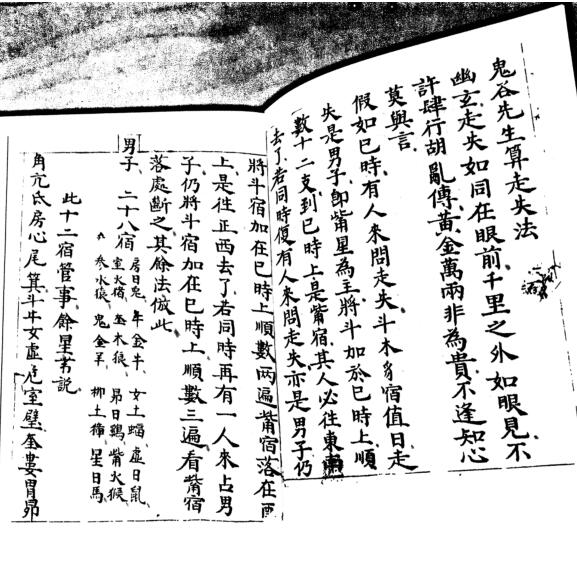 鬼谷先生算走失法
幽玄走失如同在眼前千里之外如眼見不
許肆行胡亂傳黃金萬兩非為貴不逢知心
莫與言
假如巳時有人來問走失斗木豸宿值日走
失是男子即觜星為主將斗加於巳時上順
數十二支到巳時上是觜宿其人必往東南
去了若同時復有人來問走失亦是男子仍
將斗宿加在巳時上順數兩遍觜宿落在酉
上是往正西去了若同時再有一人來占男
子仍將斗宿加在巳時上順數三遍看觜宿
落處斷之其餘法倣此
男子 二十八宿 房日兎 牛金牛 女土蝠 虛日鼠
室火猪 奎木狼 昴日鷄 觜火猴
參水猿 鬼金羊 柳土獐 星日馬
此十二宿管事餘星不說
角亢氐房心尾箕斗牛女虛危室壁奎婁胃昴